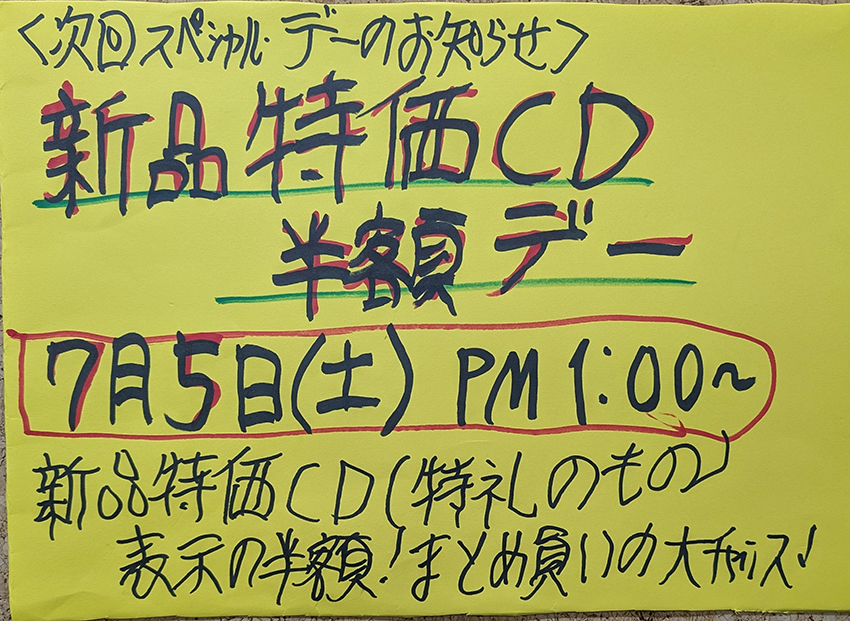 〈次回スペシャル・デーのお知らせ〉
新品特価CD
半額デー
7月5日(土) PM 1:00~
新品特価CD(特礼のもの)
表示の半額!まとめ買いの大チャンス♪